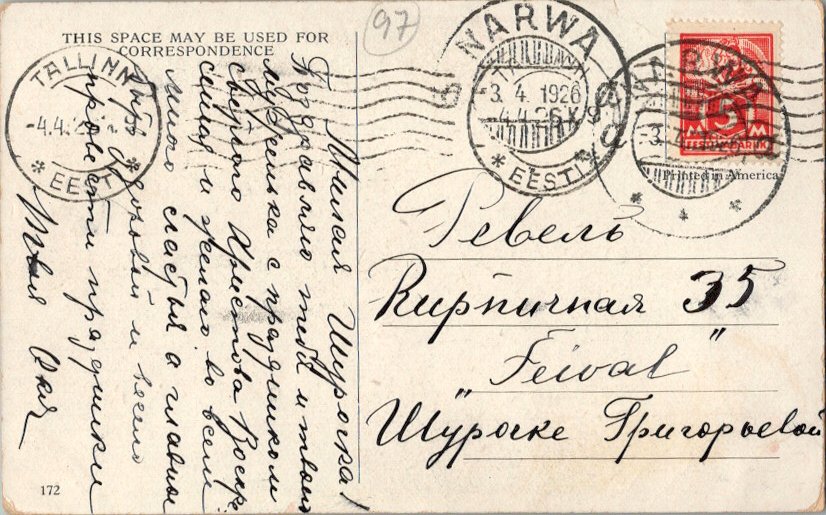 THIS SPACE MAY BE USED FOR
CORRESPONDENCE
97
TALLINN
-4.4.2
* EESTI *
NARWA
3. 4. 1926
* EESTI *
NARWA
5
M M
EESTI
Printed in America
Милая Шурочка!
Поздравляю тебя и твоего
муженька с праздником
Светлого Христова Воскр.
и желаю во всем
много счастья а главное
здоровья и весело
провести праздники
Твоя Оля
Ревель
Кирпичная 35
"Feiwal"
Шурочке Григорьевой
172